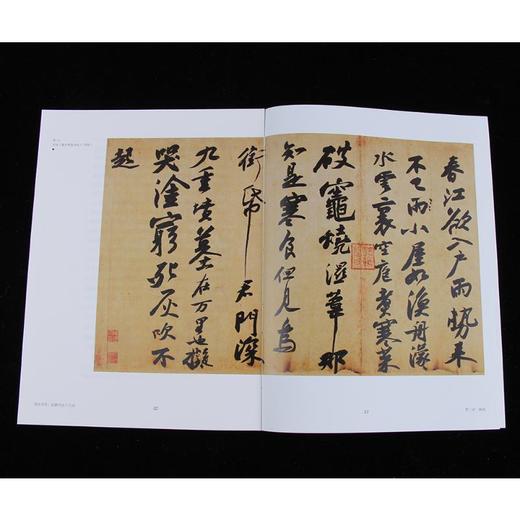 春江欲入戶雨勢來
不已雨小屋如漁舟濛
水雲裏空庖煮寒菜
破竈燒濕葦那
知是寒食但見烏
銜帋君門深
九重墳墓在万里也擬
哭塗窮死灰吹不
起